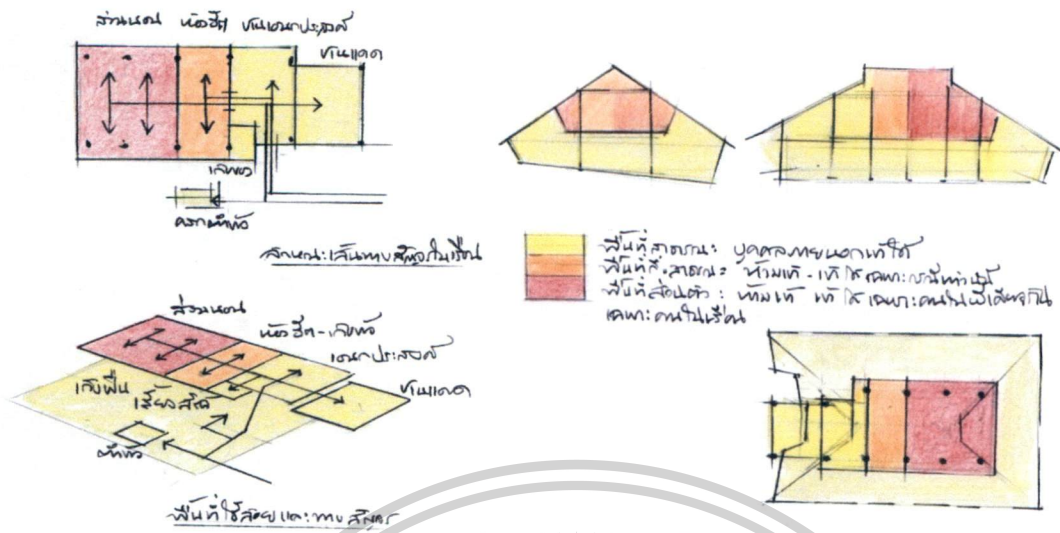 ส่วนนอน ห้องฮีต ชานเอนกประสงค์
ชานแดด
ลักษณะเส้นทางสัญจรในเรือน
ส่วนนอน
เอนกประสงค์
ชานแดด
เลี้ยงสัตว์
พื้นที่ใช้สอยและทางสัญจร
พื้นที่สาธารณะ บุคคลภายนอกเข้าได้
พื้นที่กึ่งสาธารณะ ห้ามเข้า - เข้าได้เฉพาะกรณีเท่านั้น
พื้นที่ส่วนตัว : ห้ามเข้า เข้าได้เฉพาะคนในผีเดียวกัน
เฉพาะคนในเรือน